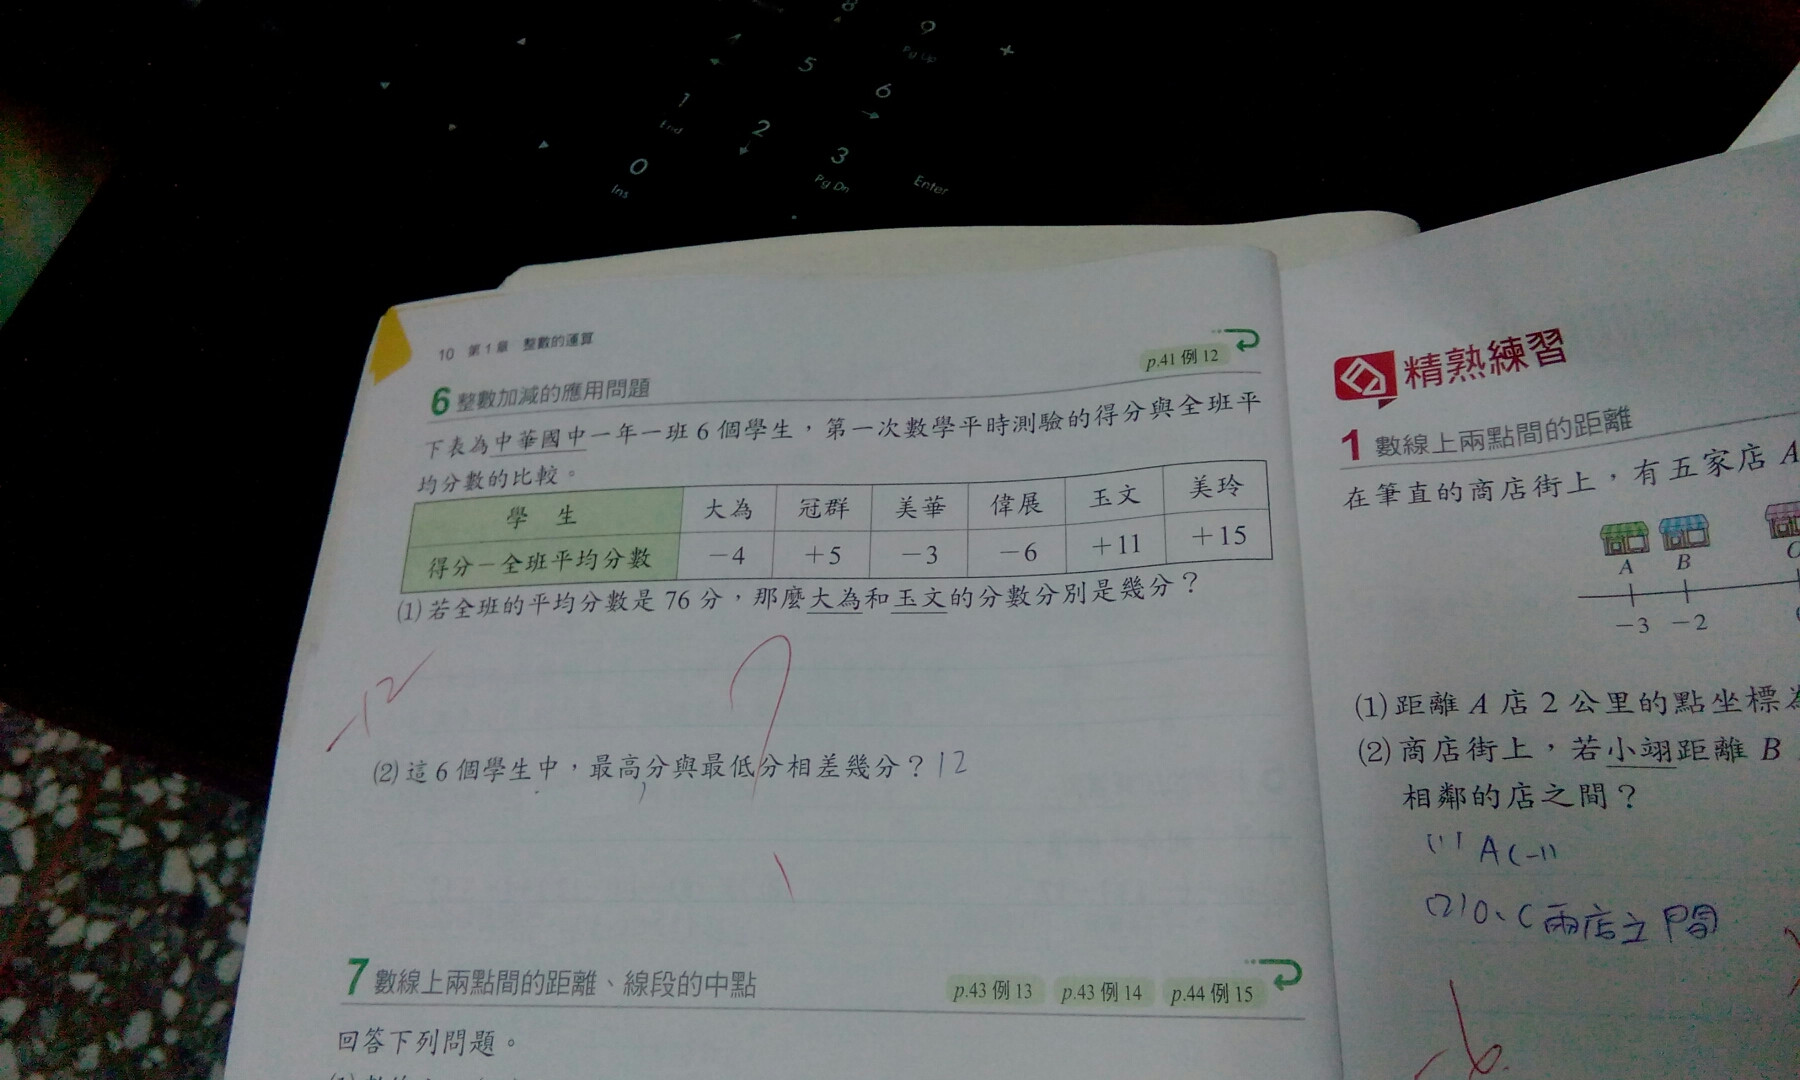 8
9
Pg Up
+
4
5
6
1
End
2
3
Pg Dn
0
Ins
Enter
10 第1章 整數的運算
p.41 例 12
6 整數加減的應用問題
下表為中華國中一年一班 6 個學生，第一次數學平時測驗的得分與全班平
均分數的比較。
學 生 大為 冠群 美華 偉展 玉文 美玲
得分－全班平均分數 －4 ＋5 －3 －6 ＋11 ＋15
(1) 若全班的平均分數是 76 分，那麼大為和玉文的分數分別是幾分？
-12
(2) 這 6 個學生中，最高分與最低分相差幾分？12
7 數線上兩點間的距離、線段的中點
p.43 例 13 p.43 例 14 p.44 例 15
回答下列問題。
精熟練習
1 數線上兩點間的距離
在筆直的商店街上，有五家店 A
A B
－3 －2
(1) 距離 A 店 2 公里的點坐標為
(2) 商店街上，若小翊距離 B
相鄰的店之間？
(1) A(-1)
(2) O、C兩店之間
-6